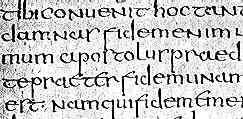 tibi conuenit hoc tant
damnas fidem enim u
mum apostolus praed
te praeter fidem unam
est: namqui fidem eme